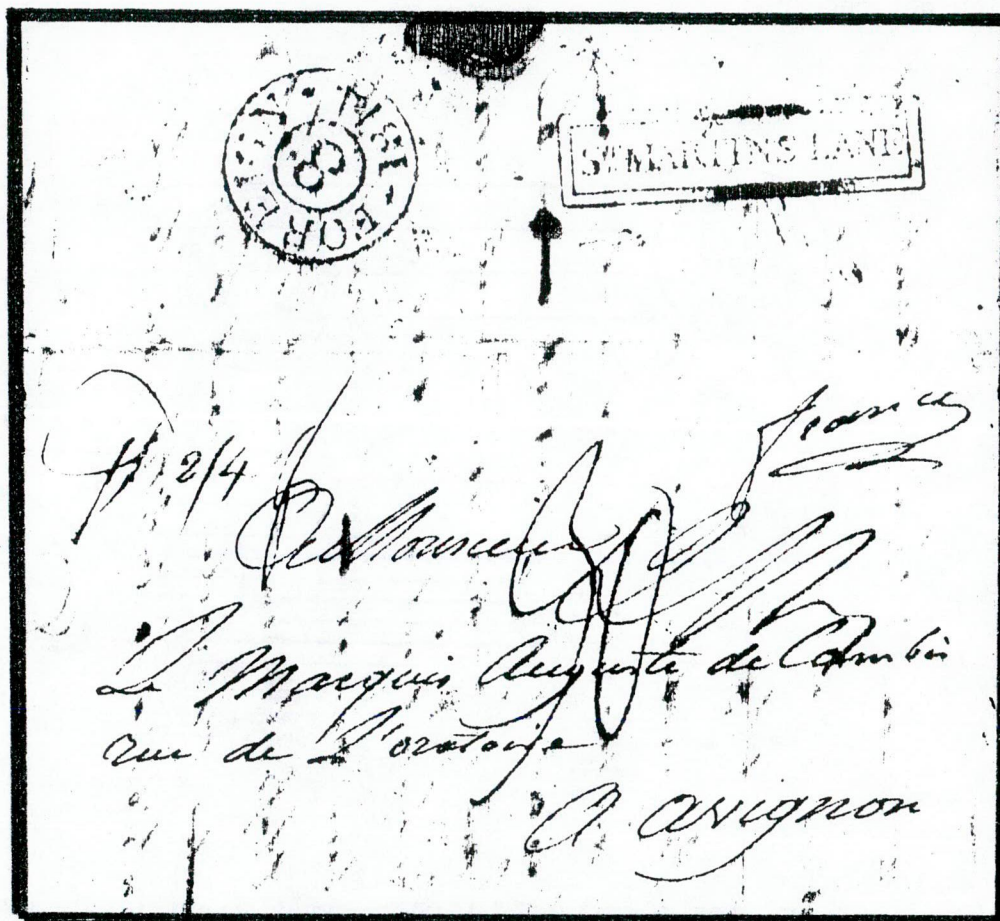 FOREIGN · 1831 ·
83
ST MARTINS LANE
France
2/4
A Monsieur
Le Marquis Auguste de Cambis
rue de L'oratoire
A avignon